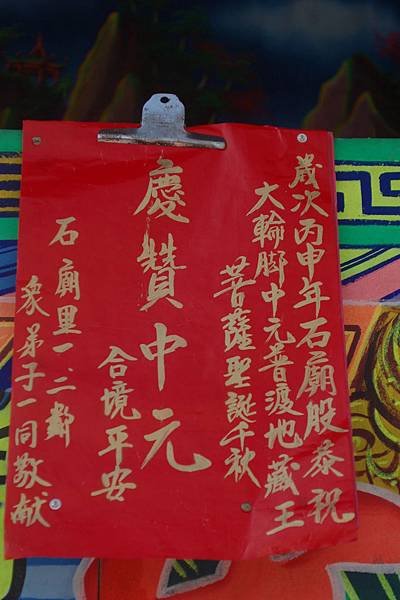 歲次丙申年石廟股恭祝
大輪腳中元普渡地藏王
菩薩聖誕千秋
慶贊中元
合境平安
石廟里一、二鄰
眾弟子一同敬献